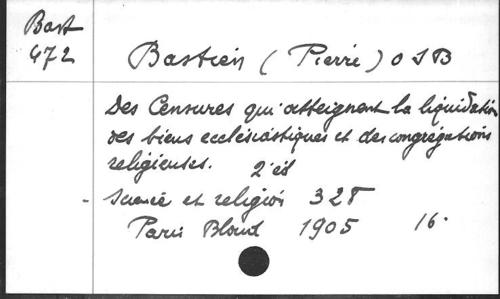 Bast
472
Bastien (Pierre) O S B
Des Censures qui atteignent la liquidation
des biens ecclésiastiques et des congrégations
religieuses. 2e éd
- Science et religion 328
Paris Bloud 1905 16°